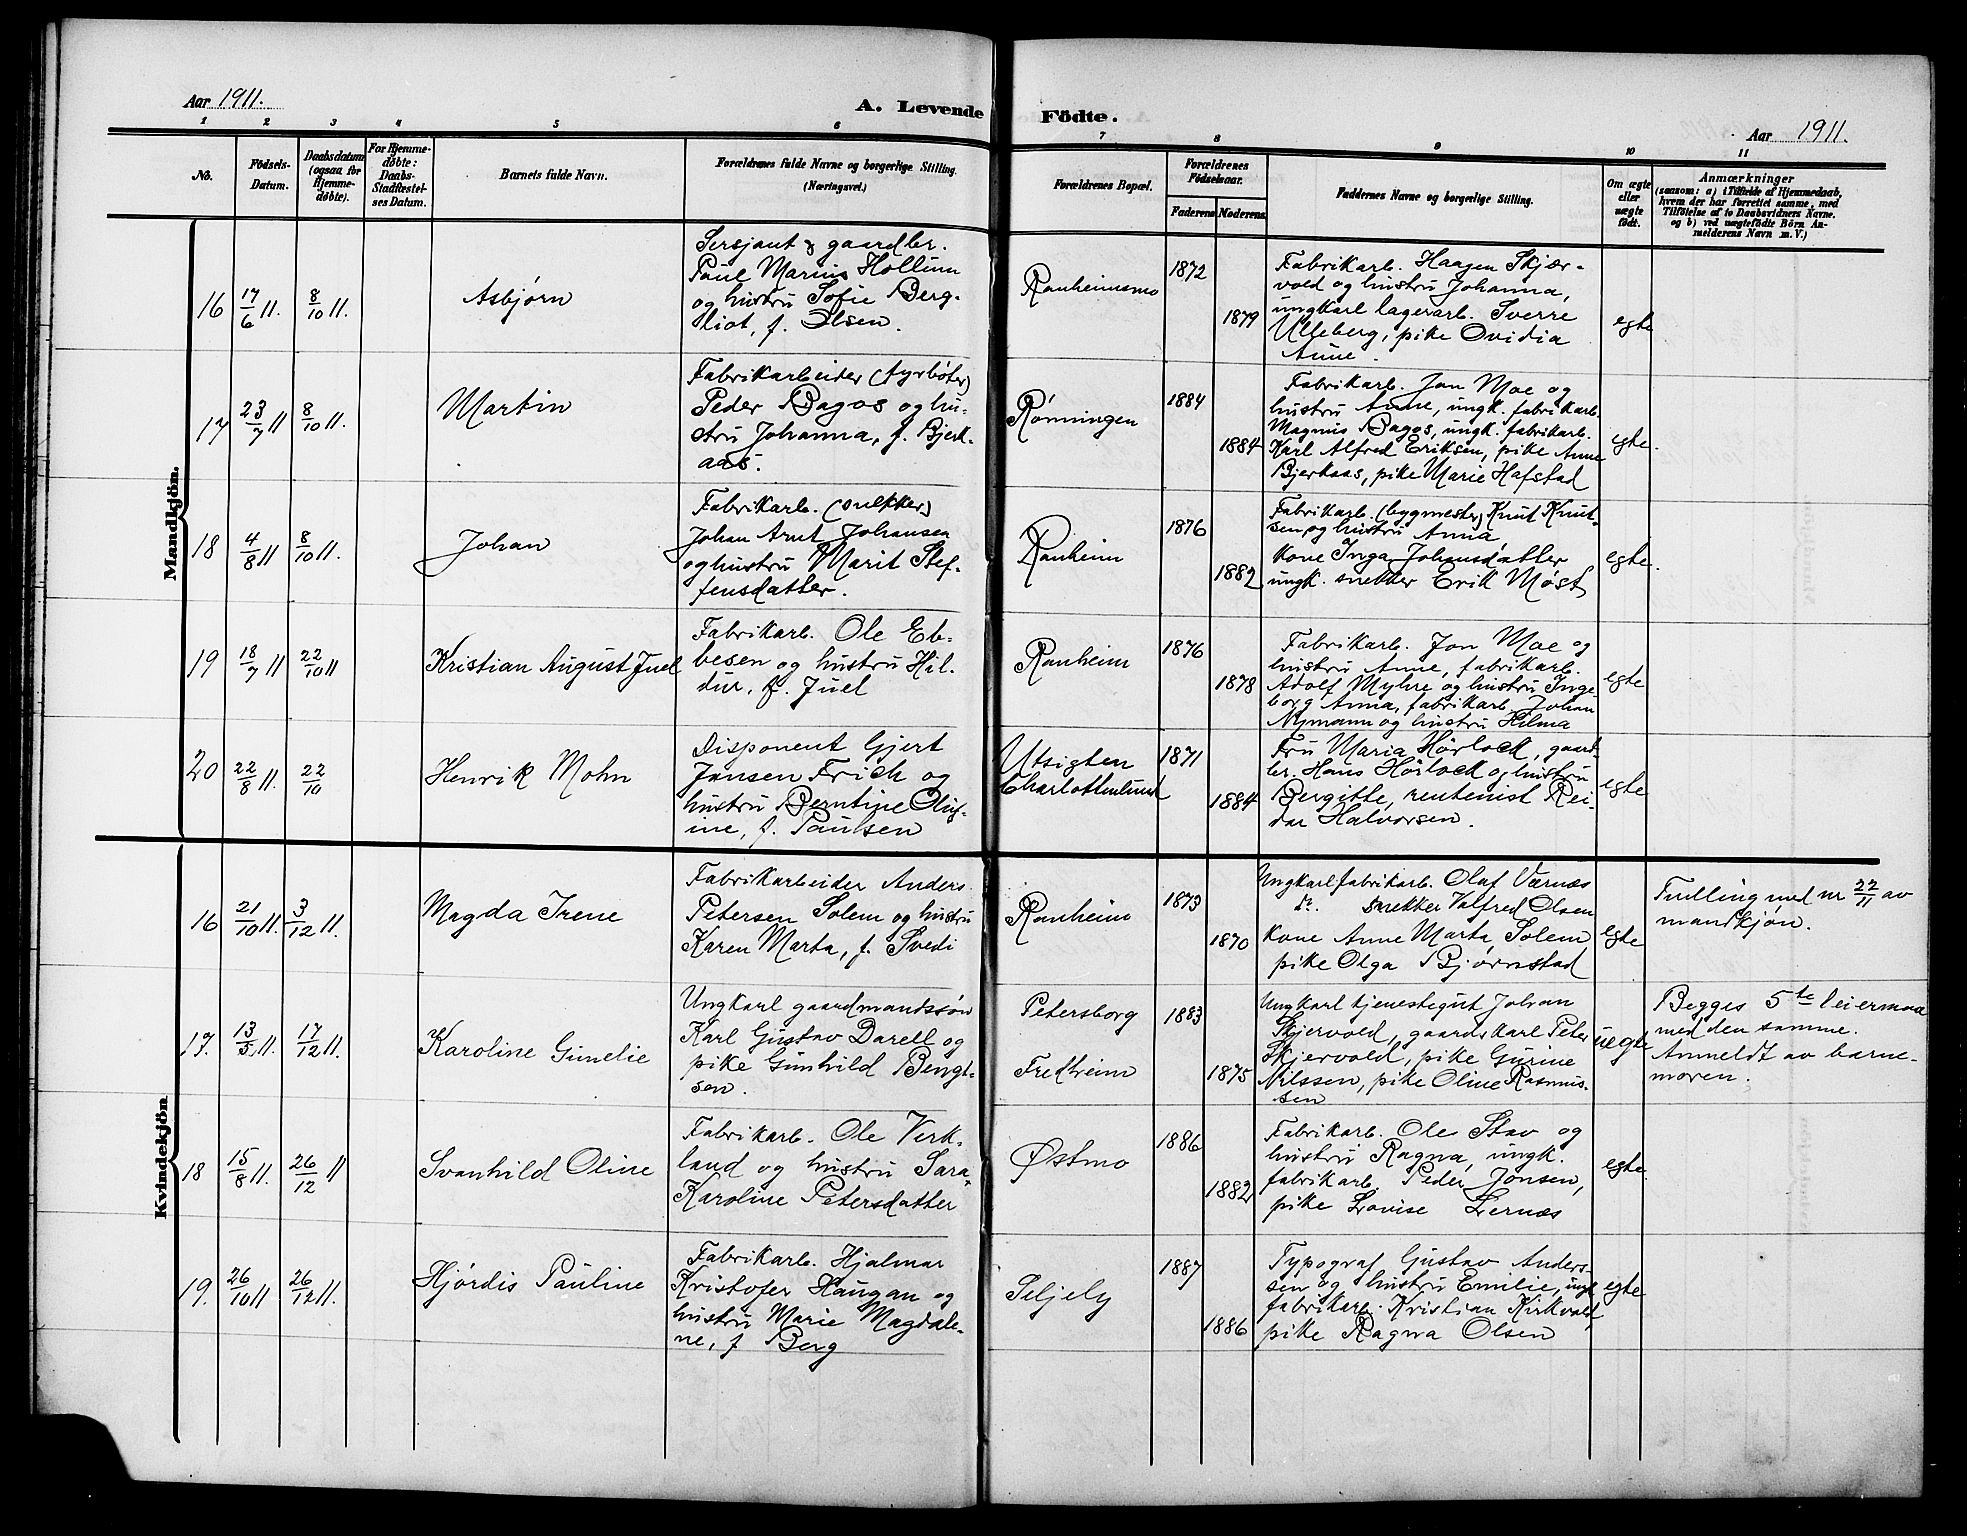 Aar 1911.
A. Levende Födte.
Aar 1911.
1 2 3 4 5 6 7 8 9 10 11
No.
Födsels-
Datum.
Daabsdatum
(ogsaa for
Hjemme-
döbte).
For Hjemme-
døbte:
Daabs-
Stadfæstel-
ses Datum.
Barnets fulde Navn.
Forældrenes fulde Navne og borgerlige Stilling.
(Næringsvei.)
Forældrenes Bopæl.
Forældrenes
Födselsaar.
Faderens
Moderens.
Faddernes Navne og borgerlige Stilling.
Om ægte
eller
uægte
født.
Anmærkninger
(saasom: a) i Tilfælde af Hjemmedaab,
hvem der har forrettet samme, med
Tilføielse af to Daabsvidners Navne.
og b) ved uægtefödte Börn An-
melderens Navn m. V.)
Mandkjön.
16
17/6 11.
8/10 11.
Asbjørn
Sersjant & gaardbr.
Paul Marius Hollum
og hustru Sofie Berg-
liot, f. Olsen.
Ranheimsmo
1872
1879
Fabrikarb. Haagen Skjær-
vold og hustru Johanna,
ungkarl lagerarb. Sverre
Ulleberg, pike Ovidia
Aune.
egte
17
23/7 11
8/10 11.
Martin
Fabrikarbeider (fyrbøter)
Peder Bagøs og hu-
stru Johanna, f. Bjerk-
aas.
Rønningen
1884
1884
Fabrikarb. Jon Moe og
hustru Anne, ungk. fabrikarb.
Magnus Bagøs, ungk. fabrikarb.
Karl Alfred Eriksen, pike Anne
Bjerkaas, pike Marie Hafstad
egte.
18
4/8 11
8/10 11.
Johan
Fabrikarb. (snekker)
Johan Arnt Johansen
og hustru Marit Stef-
fensdatter.
Ranheim
1876
1882
Fabrikarb. (bygmester) Knut Knut-
sen og hustru Anna
kone Inga Johansdatter
ungk. snekker Erik Møst
egte.
19
18/7 11
22/10 11
Kristian August Juel
Fabrikarb. Ole Eb-
besen og hustru Hil-
dur, f. Juel
Ranheim
1876
1878
Fabrikarb. Jon Moe og
hustru Anne, fabrikarb.
Adolf Myhre og hustru Inge-
borg Anna, fabrikarb. Johan
Nymann og hustru Hilma
egte
20
22/8 11.
22/10
Henrik Mohn
Disponent Gjert
Jansen Frich og
hustru Berntine Olug-
ine, f. Paulsen
Utsigten
Charlottenlund
1871
1884
Fru Maria Hørlock, gaard-
br. Hans Hørlock og hustru
Bergitte, rentenist Rei-
dar Halvorsen.
egte
Kvindekjön
16
21/10 11.
3/12 11.
Magda Irene
Fabrikarbeider Anders
Petersen Solem og hustru
Karen Marta, f. Svedi
Ranheim
1873
1870
Ungkarl fabrikarb. Olaf Værnes
do. snekker Valfred Olsen
kone Anne Marta Solem
pike Olga Bjørnstad
egte
Tvilling med nr 22/11 av
mandkjøn.
17.
13/5 11.
17/12 11.
Karoline Gunelie
Ungkarl gaardmandssøn
Karl Gustav Darell og
pike Gunhild Bengt-
sen.
Petersborg
Fredheim
1883
1875
Ungkarl tjenestegut Johan
Skjervold, gaardskarl Peter
Skjervold, pike Gurine
Nilssen, pike Oline Rasmus-
sen
uegte
Begges 5te leiermaal
med den samme.
Anmeldt av barne-
moren.
18
15/8 11.
26/12 11
Svanhild Oline
Fabrikarb. Ole Verk-
land og hustru Sara
Karoline Petersdatter
Østmo
1886
1882
Fabrikarb. Ole Stav og
hustru Ragna, ungk.
fabrikarb. Peder Jonsen,
pike Lovise Lernæs
egte
19.
26/10 11
26/12 11.
Hjørdis Pauline
Fabrikarb. Hjalmar
Kristofer Haugan og
hustru Marie Magdale-
ne, f Berg
Seljely
1887
1886
Typograf Gustav Anders-
sen og hustru Emilie, ungk
fabrikarb. Kristian Kirkvold,
pike Ragna Olsen
egte